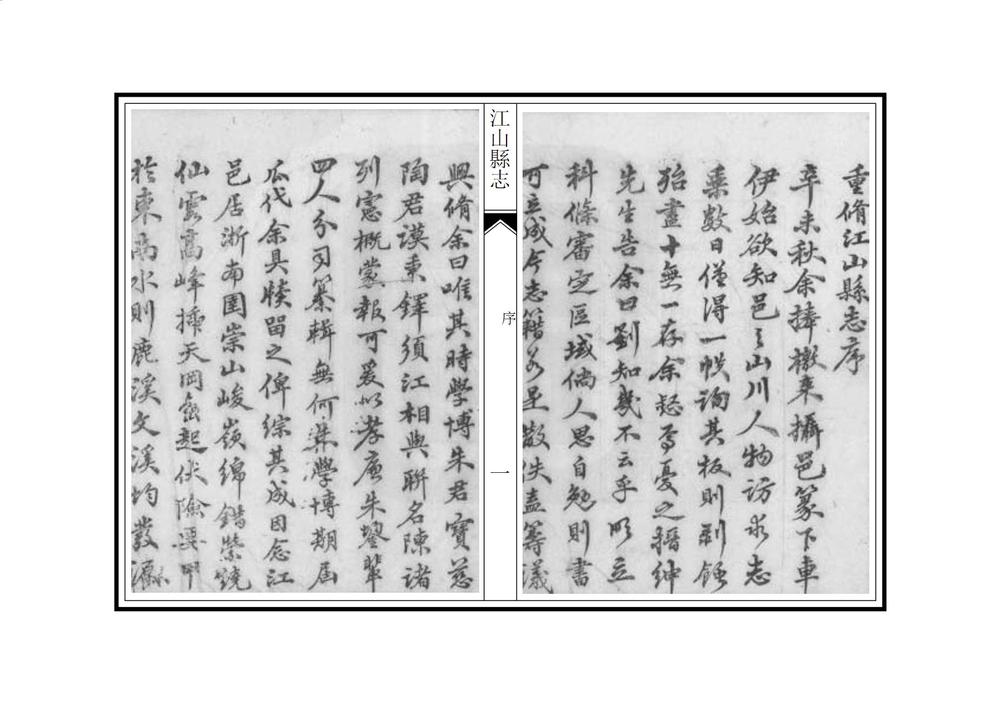 重脩江山縣志序
辛未秋余捧檄來攝邑篆下車
伊始欲知邑之山川人物訪求志
乘数日僅得一帙詢其板則剥蝕
殆盡十無一存余慭焉憂之搢紳
先生告余曰劉知幾不云乎明立
科條審定區域倘人思自勉則書
可立成今志籍多呈散佚盍籌議
江山縣志
序
一
興脩余曰唯其時學博朱君寶慈
陶君謨秉鐸須江相與聯名陳諸
列憲概蒙報可爰以孝廉朱鋆輩
四人分司纂輯無何朱學博期屆
瓜代余具牘留之俾綜其成因念江
邑居浙南圉崇山峻嶺綿錯縈繞
仙雲高峰插天岡巒起伏險要甲
於東南水則鹿溪文溪均發源